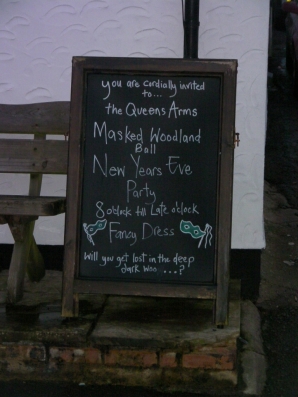 you are cordially invited
to...
the Queens Arms
Masked Woodland
Ball
New Years Eve
Party
8 o'clock till Late o'clock
Fancy Dress
Will you get lost in the deep
dark woo ....?